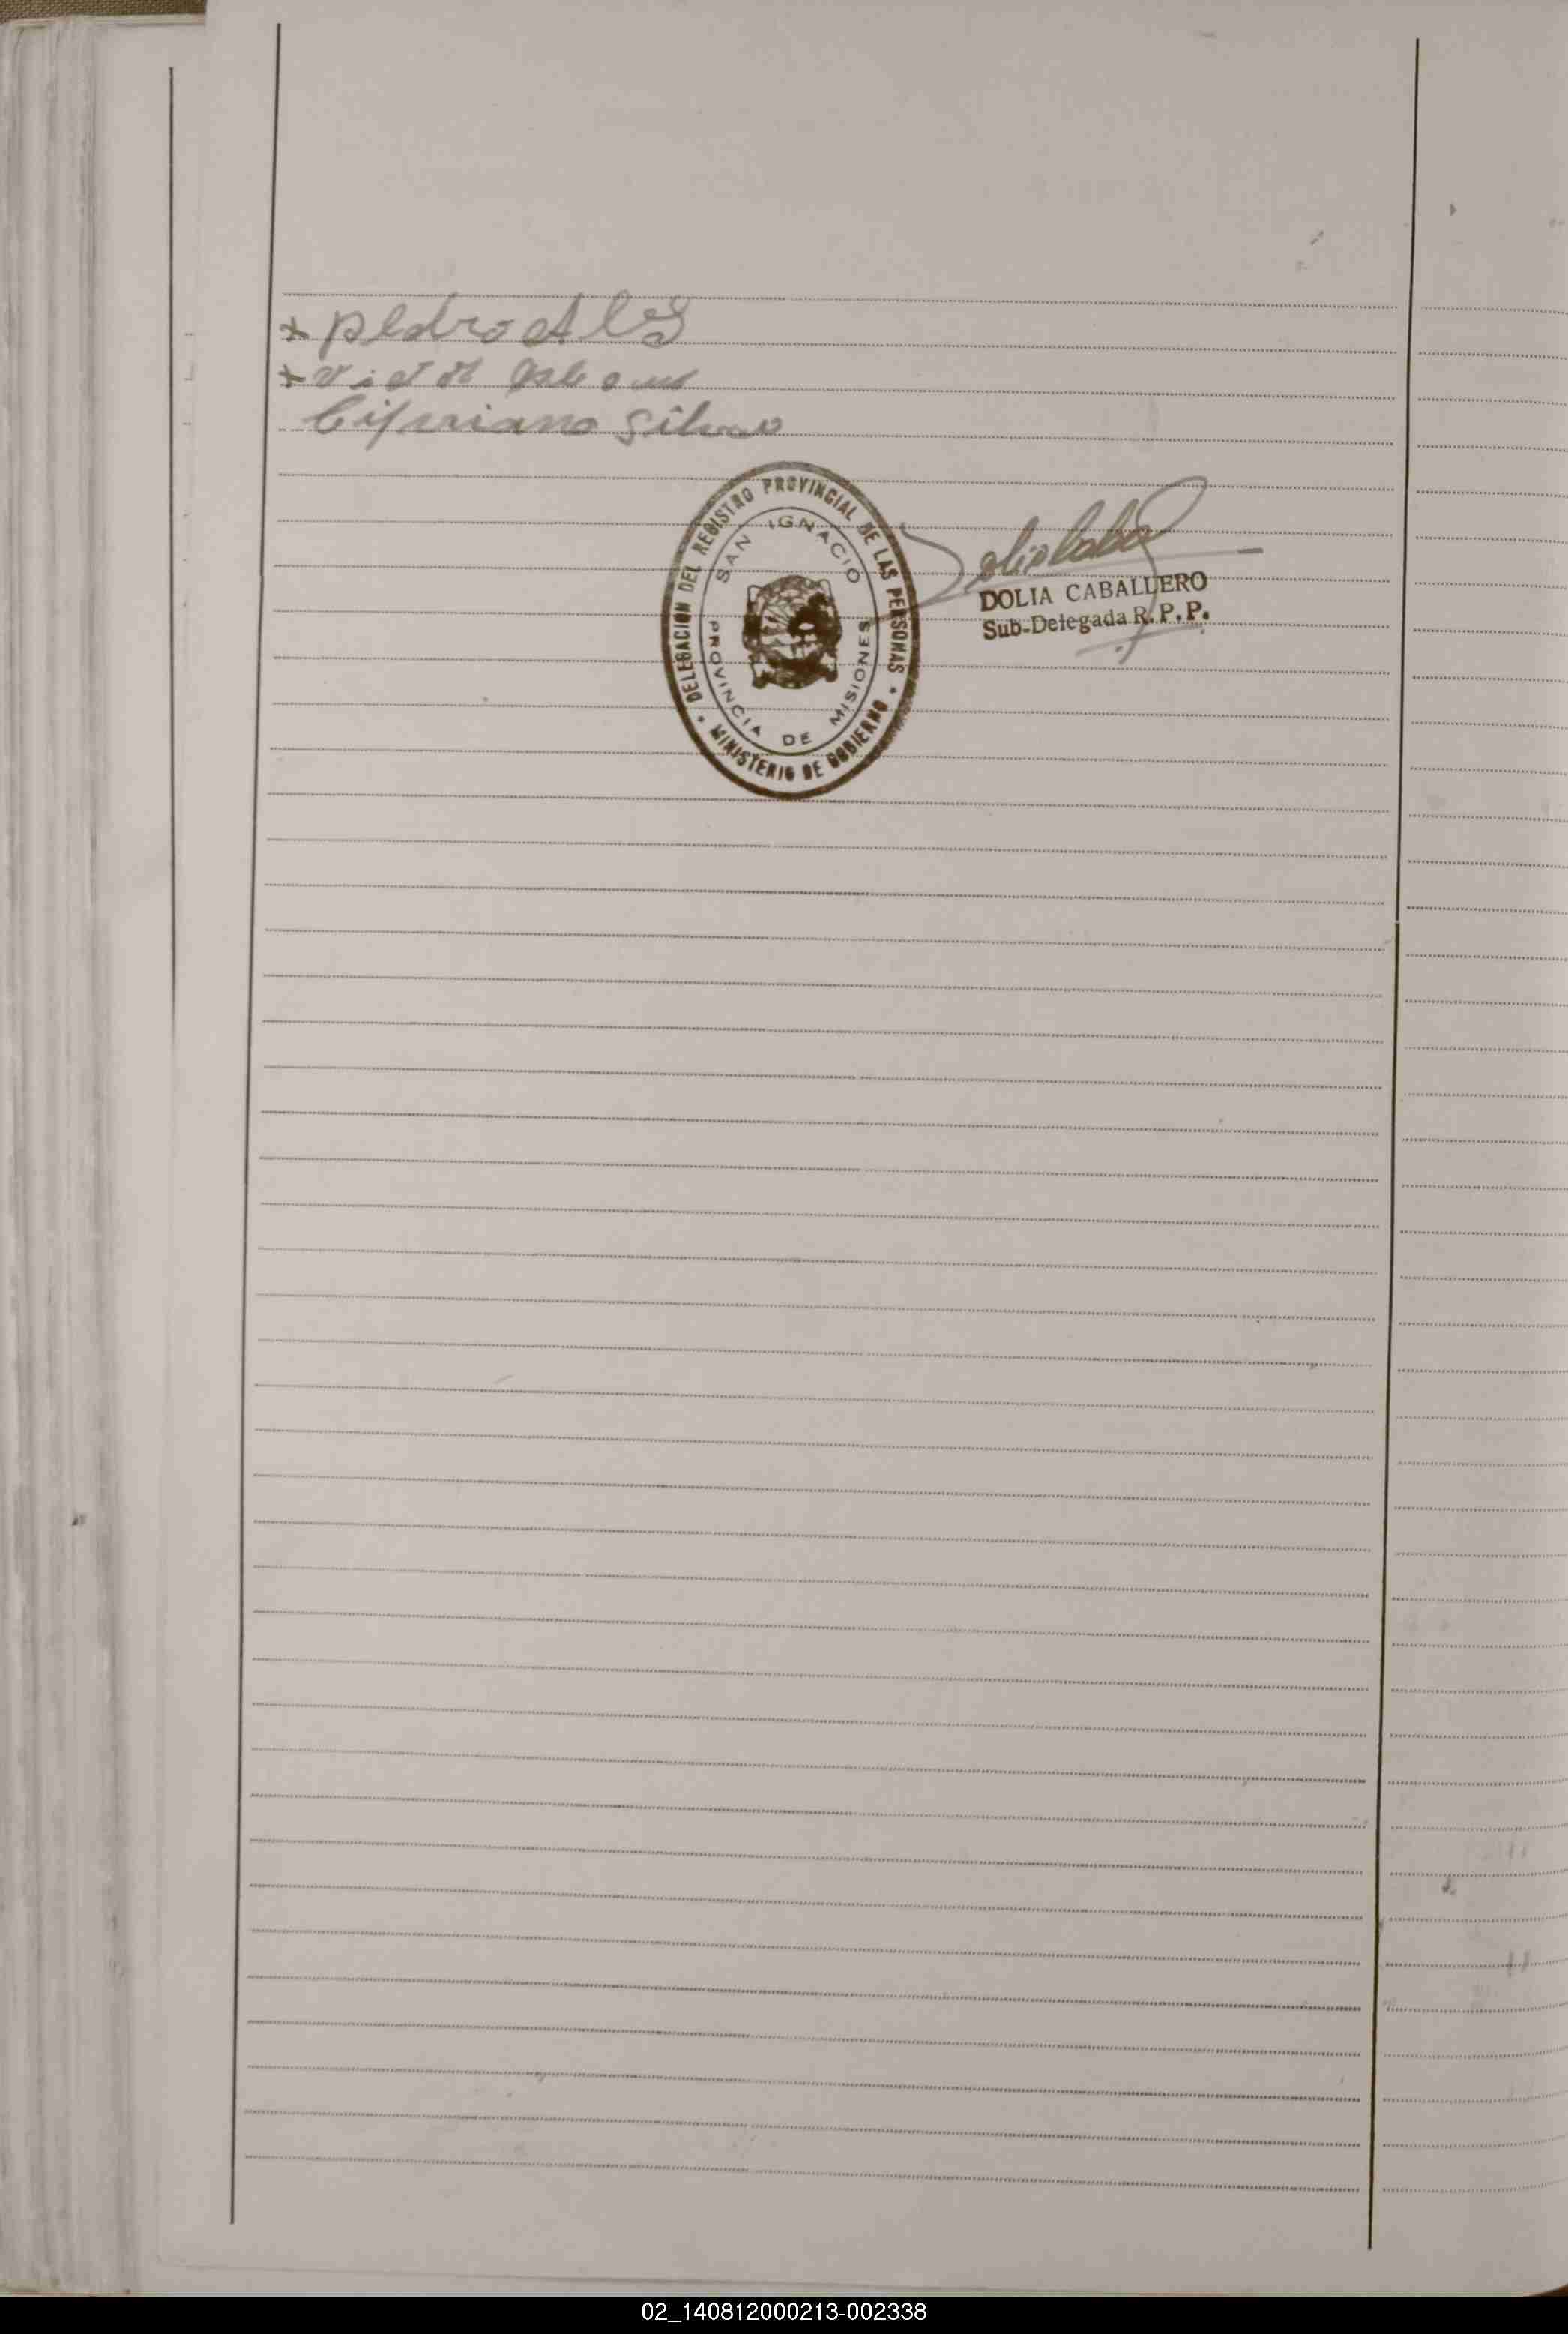 x pedro Als
x
Cipriano Silva
DELEGACION DEL REGISTRO PROVINCIAL DE LAS PERSONAS
SAN IGNACIO
PROVINCIA DE MISIONES
* MINISTERIO DE GOBIERNO *
DOLIA CABALLERO
Sub-Delegada R.P.P.
02_140812000213-002338